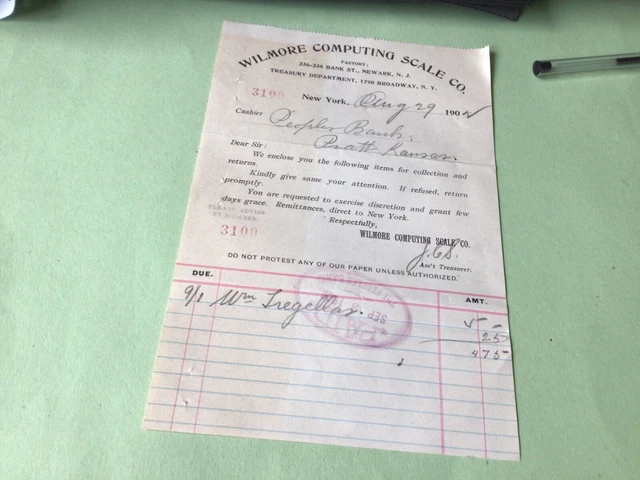 WILMORE COMPUTING SCALE CO.
FACTORY:
236-238 BANK ST., NEWARK, N. J.
TREASURY DEPARTMENT, 1790 BROADWAY, N. Y.
3100
New York, Aug 29 190
Cashier Peoples Bank,
Pratt Kansas.
Dear Sir:
We enclose you the following items for collection and
returns.
Kindly give same your attention. If refused, return
promptly.
You are requested to exercise discretion and grant few
days grace. Remittances, direct to New York.
PLEASE ADVISE
BY NUMBER
3100
Respectfully,
WILMORE COMPUTING SCALE CO.
Ass't Treasurer.
DO NOT PROTEST ANY OF OUR PAPER UNLESS AUTHORIZED.
DUE. AMT.
9/1 Wm Tregellas. 5 -
25
475
SEP
PAID